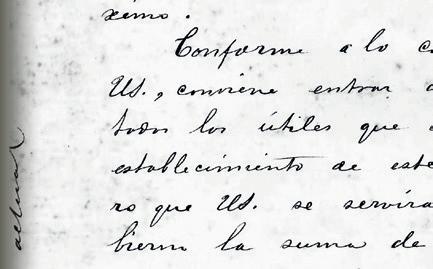 ximo.
Conforme a lo c
US., conviene entrar a
todos los útiles que
establecimiento de este
ro que US. se servira
bierno la suma de
actual